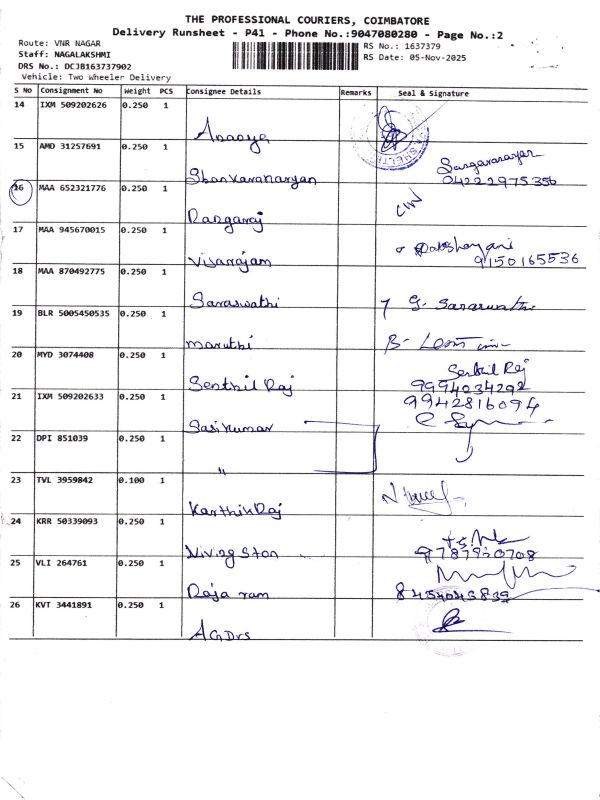 THE PROFESSIONAL COURIERS, COIMBATORE
Delivery Runsheet - P41 - Phone No.:9047080280 - Page No.:2
Route: VNR NAGAR
Staff: NAGALAKSHMI
DRS No.: DCJB163737902
Vehicle: Two Wheeler Delivery
RS No.: 1637379
RS Date: 05-Nov-2025
S No Consignment No Weight PCS Consignee Details Remarks Seal & Signature
14 IXM 509202626 0.250 1
15 AMD 31257691 0.250 1
Shankaranarayan
04222975356
16 MAA 652321776 0.250 1
Rangaraj
17 MAA 945670015 0.250 1
Vijayarajam
9150165536
18 MAA 870492775 0.250 1
Saraswathi G. Saraswathi
19 BLR 5005450535 0.250 1
maruthi
20 MYD 3074408 0.250 1
Senthil Raj
Senthil Raj 9994034292
21 IXM 509202633 0.250 1
9942816094
Sasikumar
22 DPI 851039 0.250 1
"
23 TVL 3959842 0.100 1
Karthik Raj
24 KRR 50339093 0.250 1
Living Ston 9787950708
25 VLI 264761 0.250 1
Raja ram 8454043839
26 KVT 3441891 0.250 1